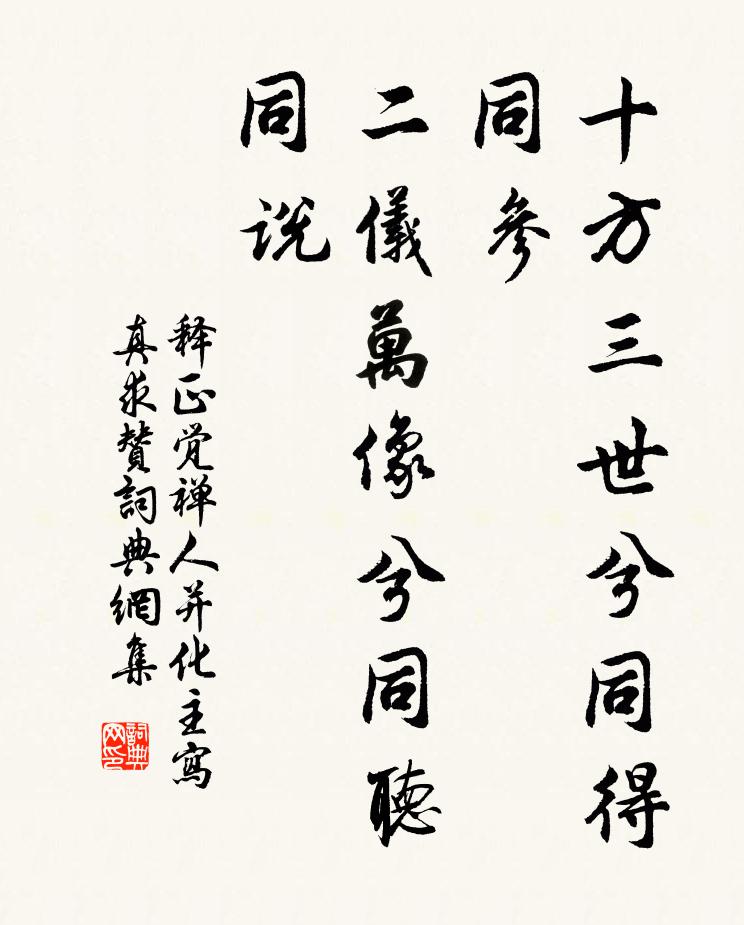 十方三世兮同得
同參
二儀萬像兮同聽
同说
释正觉禅人并化主寫
真求賛詞典網集
詞典网印